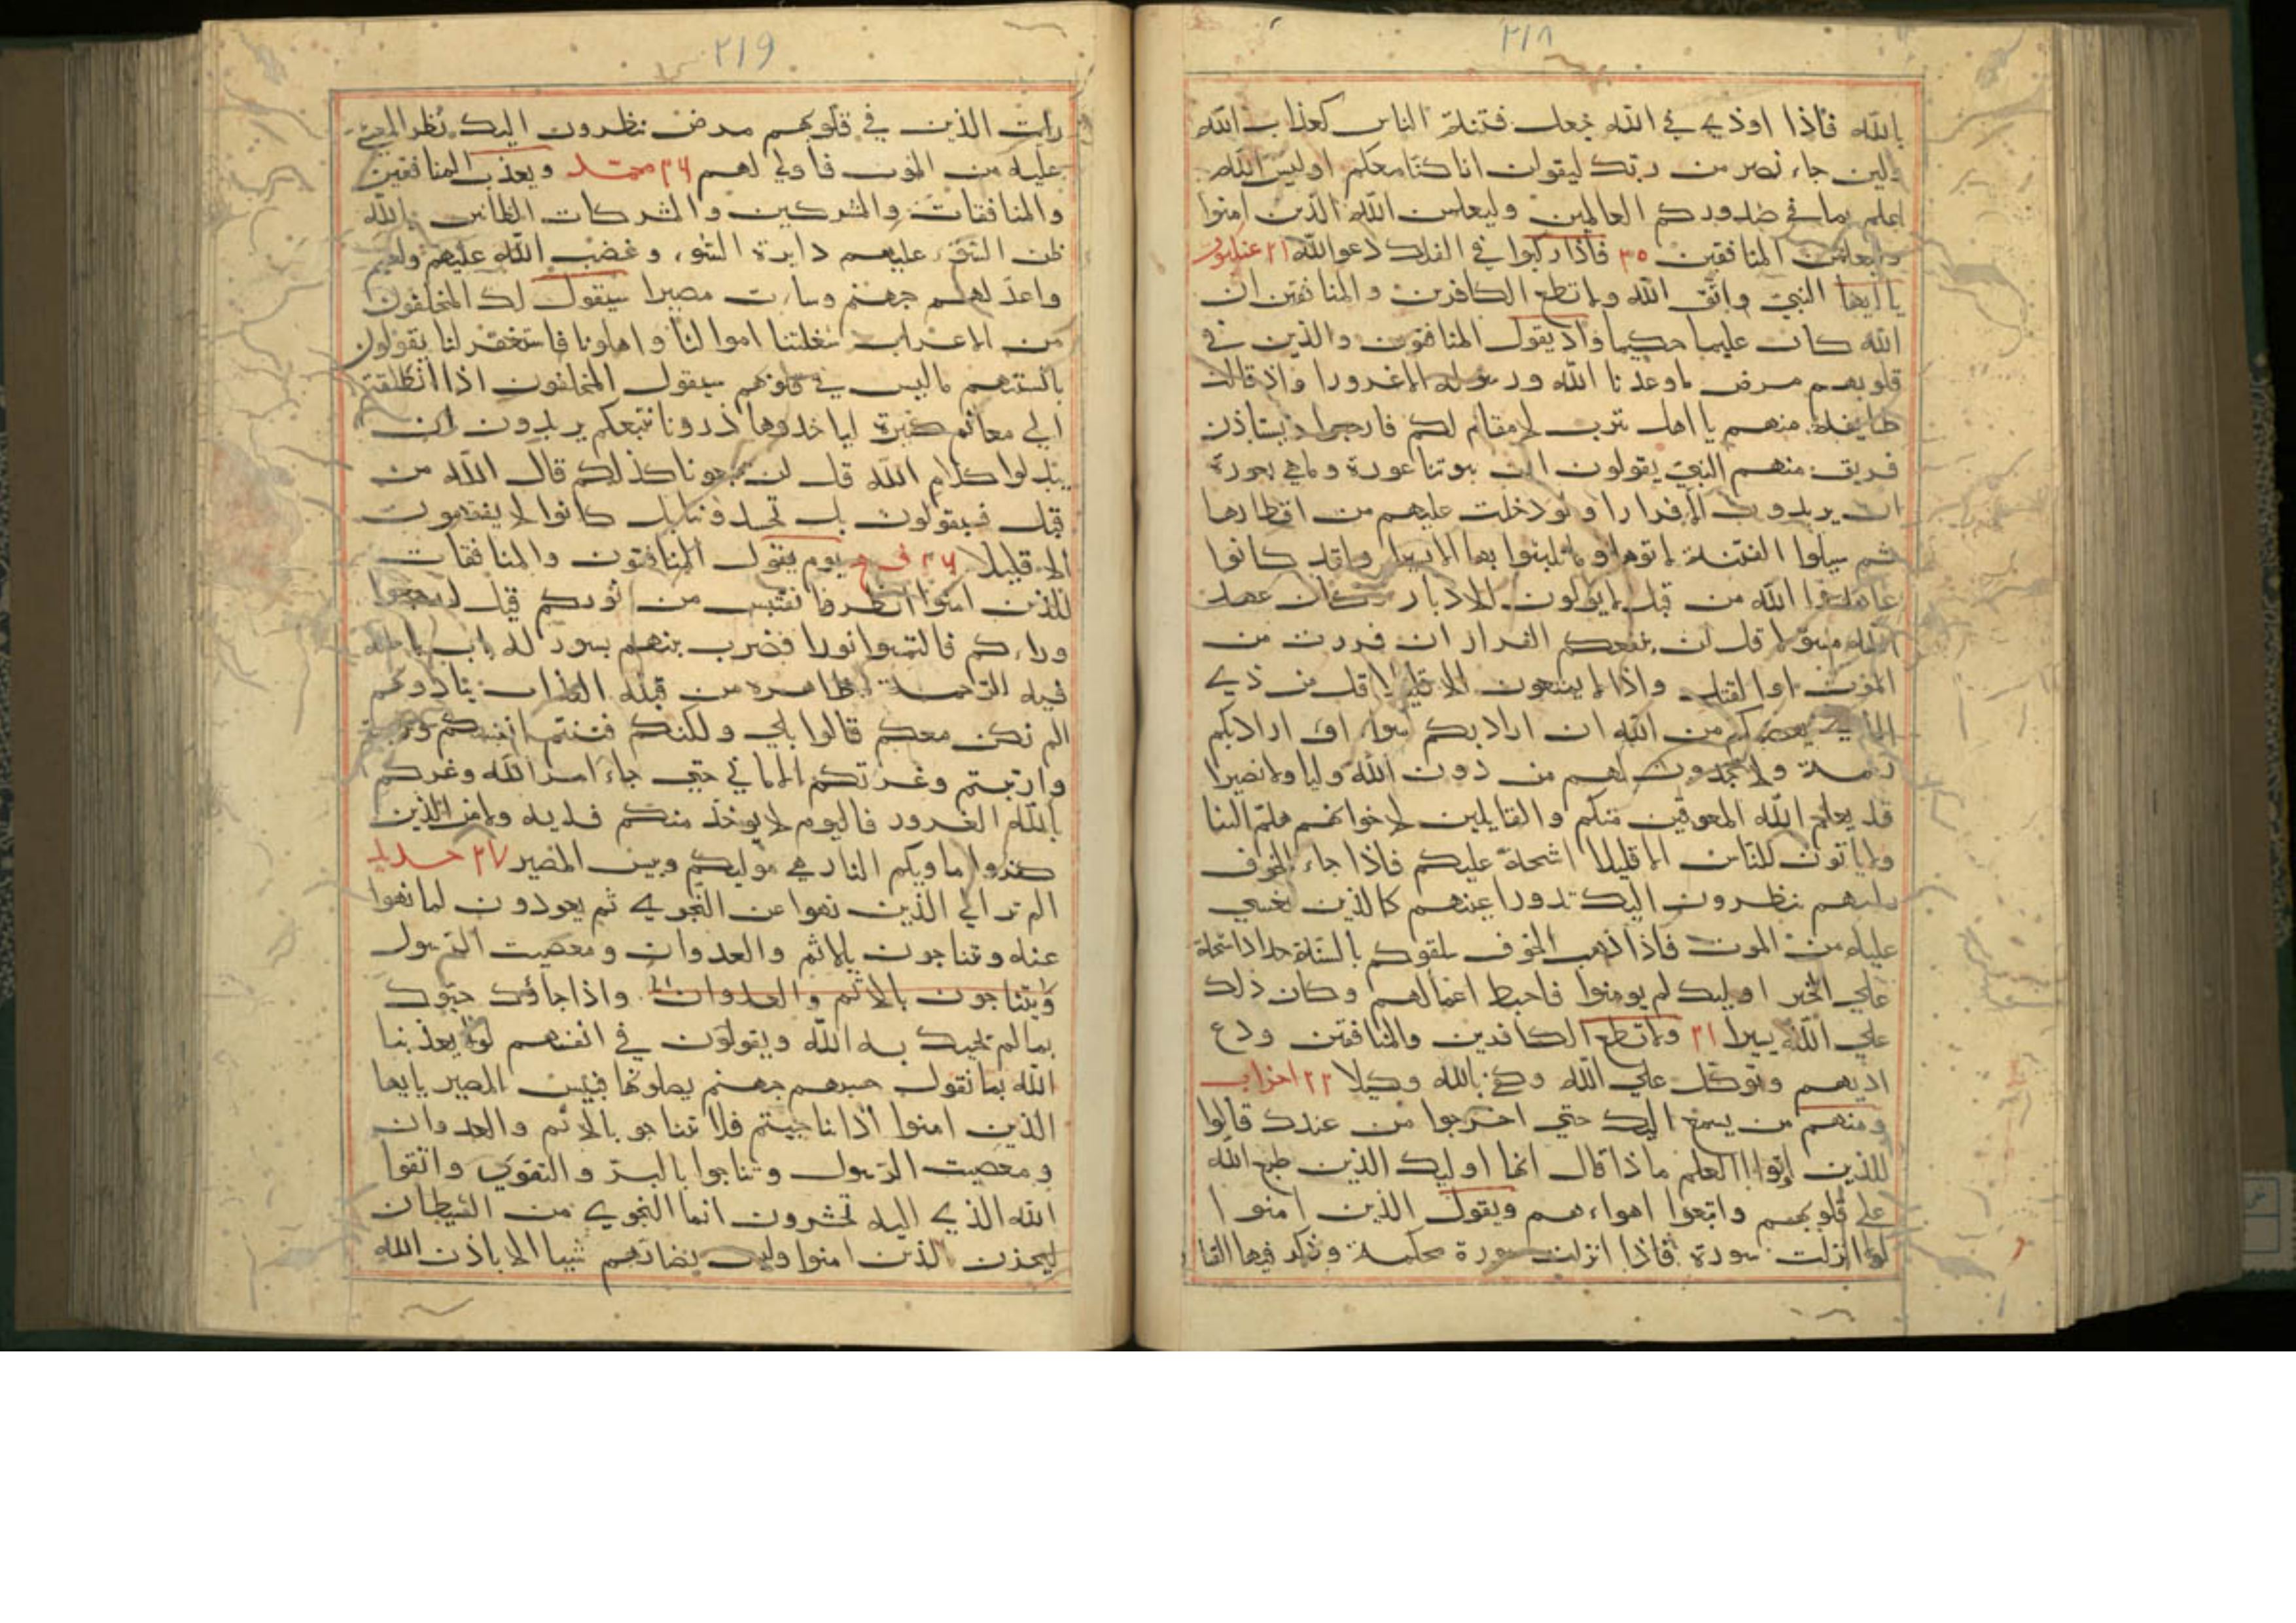 ٢١٨
بالله فاذا اوذي في الله جعل فتنة الناس كعذاب الله
ولين جاء نصر من ربك ليقولن انا كنا معكم اوليس الله
اعلم بما في صدور العالمين وليعلمن الله الذين امنوا
وليعلمن المنافقين ٢٥ فاذا ركبوا في الفلك دعوالله ٢١ عنكبوت
يا ايها النبي واتق الله ولا تطع الكافرين والمنافقين ان
الله كان عليما حكيما واذ يقول المنافقون والذين في
قلوبهم مرض ما وعدنا الله ورسوله الا غرورا واذ قالت
طايفة منهم يا اهل يثرب لا مقام لكم فارجعوا ويستاذن
فريق منهم النبي يقولون ان بيوتنا عورة وما هي بعورة
ان يريدون الا فرارا ولو دخلت عليهم من اقطارها
ثم سيلوا الفتنة لاتوها وما تلبثوا بها الا يسيرا ولقد كانوا
عاهدوا الله من قبل لا يولون الادبار وكان عهد
الله مسؤلا قل لن ينفعكم الفرار ان فررت من
الموت او القتل واذا لا يمتعون الا قليلا قل من ذي
الذي يعصمكم من الله ان اراد بكم سوء او اراد بكم
رحمة ولا يجدون لهم من دون الله وليا ولا نصيرا
قد يعلم الله المعوقين منكم والقايلين لاخوانهم هلم الينا
ولا ياتون للناس الا قليلا اشحة عليكم فاذا جاء الخوف
رايتهم ينظرون اليك تدور اعينهم كالذين يغشي
عليه من الموت فاذا ذهب الخوف سلقوكم بالسنة حداد اشحة
علي الخير اوليك لم يومنوا فاحبط اعمالهم وكان ذلك
علي الله يسيرا ٢١ ولا تطع الكافرين والمنافقين ودع
اذيهم وتوكل علي الله وكفي بالله وكيلا ٢٢ احزاب
ومنهم من يسمع اليك حتي اخرجوا من عندك قالوا
للذين اوتوا العلم ماذا قال انفا اوليك الذين طبع الله
علي قلوبهم واتبعوا اهواءهم ويقول الذين امنوا
لولا انزلت سورة فاذا انزلت سورة محكمة وذكر فيها القتا
٢١٩
رايت الذين في قلوبهم مرض ينظرون اليك نظر المغشي
عليه من الموت فاولي لهم ٢٦ محمد ويعذب المنافقين
والمنافقات والمشركين والمشركات الظانين بالله
ظن السوء عليهم دايرة السوء وغضب الله عليهم ولعنهم
واعد لهم جهنم وساءت مصيرا سيقول لك المخلفون
من الاعراب شغلتنا اموالنا واهلونا فاستغفر لنا يقولون
بالسنتهم ما ليس في قلوبهم سيقول المخلفون اذا انطلقتم
الي مغانم كثيرة لياخذوها ذرونا نتبعكم يريدون ان
يبدلوا كلام الله قل لن تتبعونا كذلكم قال الله من
قبل فسيقولون بل تحسدوننا بل كانوا لا يفقهون
الا قليلا ٢٦ فتح يوم يقول المنافقون والمنافقات
للذين امنوا انظرونا نقتبس من نوركم قيل ارجعوا
وراءكم فالتمسوا نورا فضرب بينهم بسور له باب باطنه
فيه الرحمة وظاهره من قبله العذاب ينادونهم
الم نكن معكم قالوا بلي ولكنكم فتنتم انفسكم وتربصتم
وارتبتم وغرتكم الاماني حتي جاء امر الله وغركم
بالله الغرور فاليوم لا يوخذ منكم فدية ولا من الذين
كفروا ماويكم النار هي موليكم وبيس المصير ٢٧ حديد
الم تر الي الذين نهوا عن النجوي ثم يعودون لما نهوا
عنه وتناجون بالاثم والعدوان ومعصيت الرسول
ويتناجون بالاثم والعدوان واذا جاؤك حيوك
بما لم يحيك به الله ويقولون في انفسهم لولا يعذبنا
الله بما نقول حسبهم جهنم يصلونها فبيس المصير يايها
الذين امنوا اذا ناجيتم فلا تتناجو بالاثم والعدوان
ومعصيت الرسول وتناجوا بالبر والتقوي واتقوا
الله الذي اليه تحشرون انما النجوي من الشيطان
ليحذن الذين امنوا وليس بضارهم شيا الا باذن الله